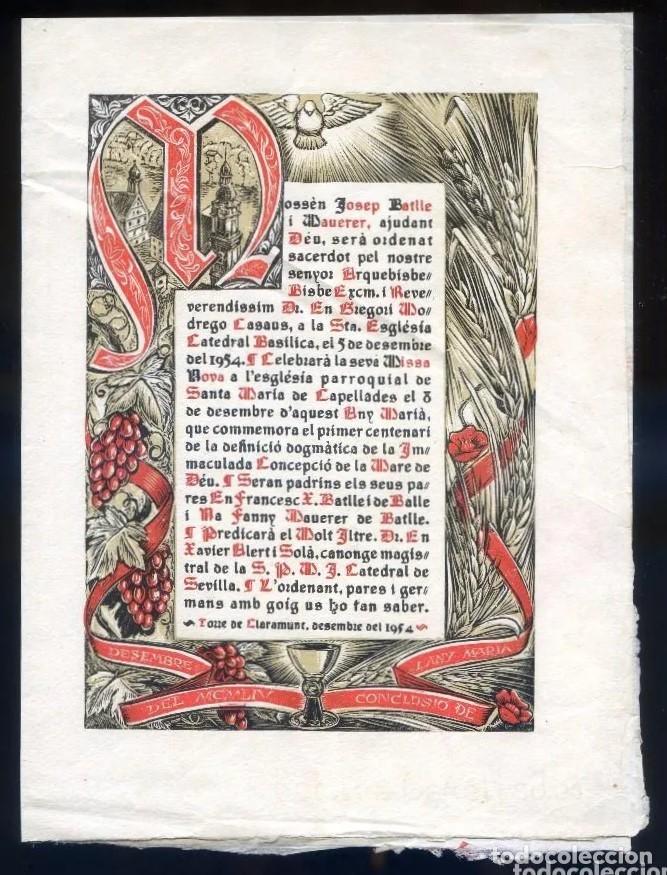 Mossèn Josep Batlle
i Mauerer, ajudant
Déu, serà ordenat
sacerdot pel nostre
senyor Arquebisbe-
Bisbe Excm. i Reve-
verendíssim Dr. En Gregori Mo-
drego Casaus, a la Sta. Església
Catedral Basílica, el 5 de desembre
del 1954. ¶ Celebrarà la seva Missa
Nova a l'església parroquial de
Santa Maria de Capellades el 8
de desembre d'aquest Any Marià,
que commemora el primer centenari
de la definició dogmàtica de la Im-
maculada Concepció de la Mare de
Déu. ¶ Seran padrins els seus pa-
res En Francesc X. Batlle i de Balle
i Na Fanny Mauerer de Batlle.
¶ Predicarà el Molt Iltre. Dr. En
Xavier Alert i Solà, canonge magis-
tral de la S. P. M. I. Catedral de
Sevilla. ¶ L'ordenant, pares i ger-
mans amb goig us ho fan saber.
Torre de Claramunt, desembre del 1954
DESEMBRE
DEL MCMLIV
CONCLUSIO DE
L'ANY MARIA
todocoleccion
todocoleccion